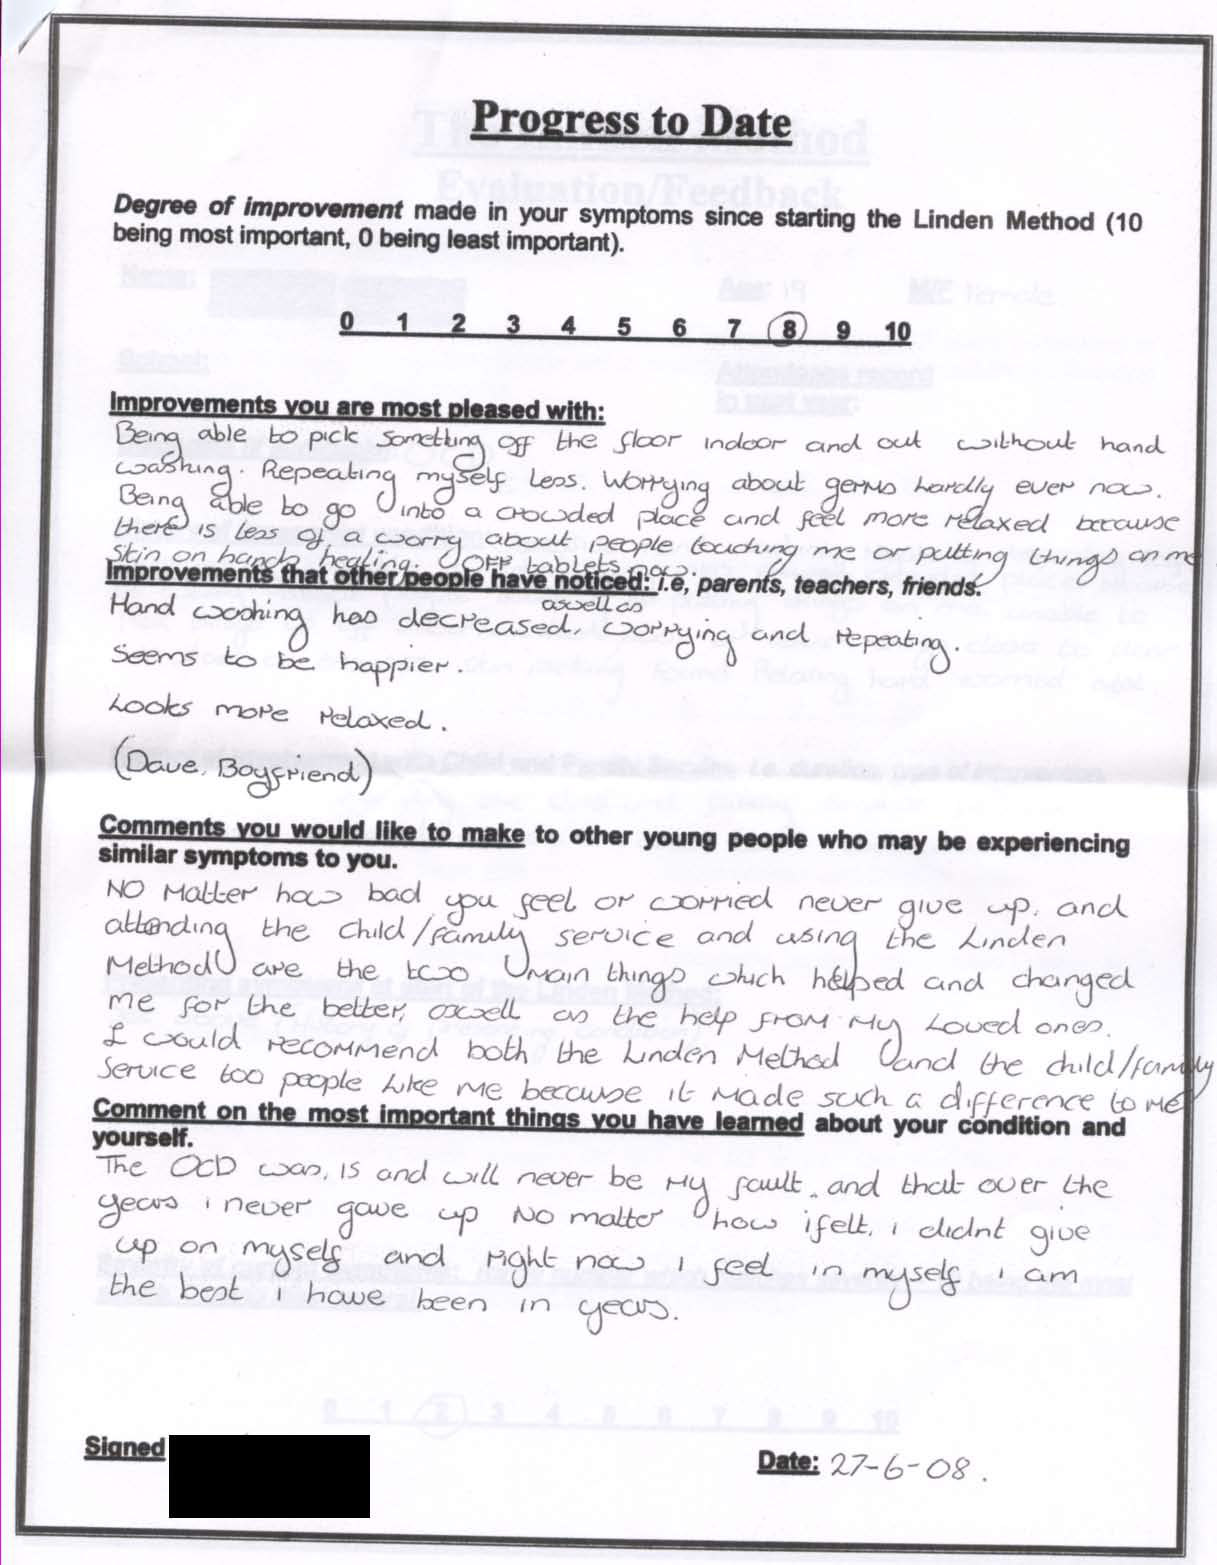 Progress to Date
Degree of improvement made in your symptoms since starting the Linden Method (10
being most important, 0 being least important).
0 1 2 3 4 5 6 7 8 9 10
Improvements you are most pleased with:
Being able to pick something off the floor indoor and out without hand
washing. Repeating myself less. Worrying about germs hardly ever now.
Being able to go into a crowded place and feel more relaxed because
there is less of a worry about people touching me or putting things on me
skin on hands healing. OFF tablets now.
Improvements that other people have noticed: i.e, parents, teachers, friends.
aswell as
Hand washing has decreased, worrying and repeating.
Seems to be happier.
Looks more relaxed.
(Dave, Boyfriend)
Comments you would like to make to other young people who may be experiencing
similar symptoms to you.
NO Matter how bad you feel or worried never give up, and
attending the child/family service and using the Linden
Method are the two main things which helped and changed
me for the better, aswell as the help from my Loved ones.
I would recommend both the Linden Method and the child/family
Service too people like me because it made such a difference to me
Comment on the most important things you have learned about your condition and
yourself.
The OCD was, is and will never be my fault, and that over the
years i never gave up no matter how i felt, i didnt give
up on myself and right now i feel in myself i am
the best i have been in years.
Signed
Date: 27-6-08.